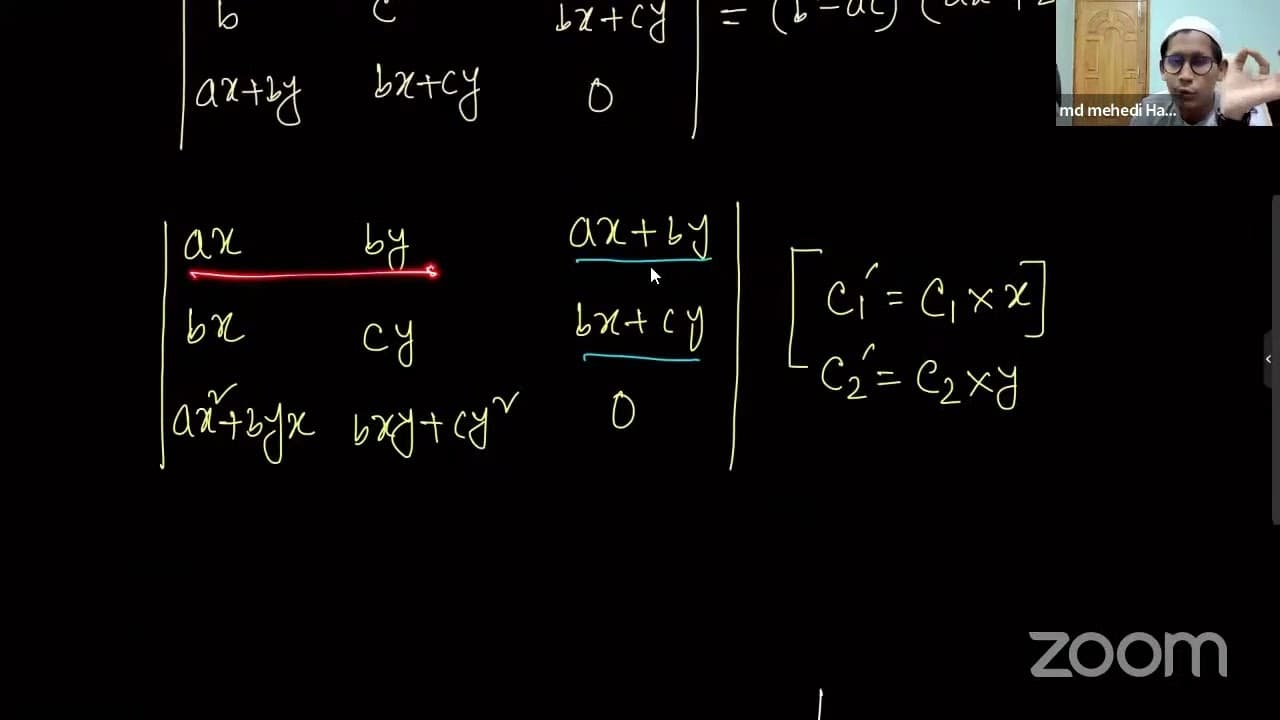 b c bx+cy = (b²-ac) (ax²+2
ax+by bx+cy 0
md mehedi Ha...
ax by ax+by
bx cy bx+cy
ax²+byx bxy+cy² 0
[C₁′ = C₁ × x]
C₂′ = C₂ × y
zoom